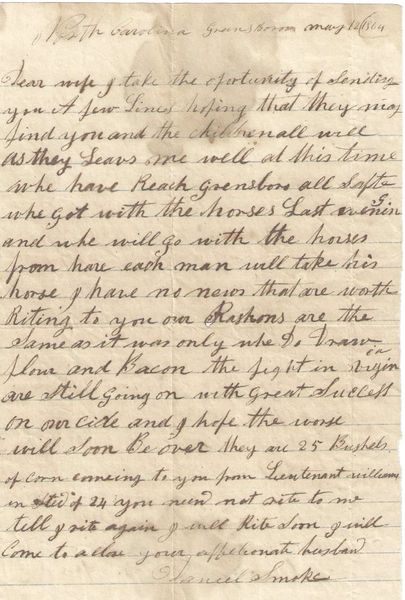 North Carolina Greensboro may 12 1864
Dear wife I take the oportunity of Sending
you A few Lines hoping that they may
find you and the children all will
As they Leavs me well at this time
whe have Reach Grensboro all Safte
whe got with the horses Last evening
and whe will go with the horses
from hare each man will take his
horse I have no news that are worth
Riting to you our Rashons are the
Same as it was only whe Do Draw
flour and Bacon the fight in virginia
are still going on with Great Success
on our cide and I hope the worse
will soon Be over they are 25 Bushels
of corn comeing to you from Lieutenant williams
in sted of 24 you need not rite to me
tell I rite again I will Rite Soon I will
Come to a close your affectionate husband
Daniel Smoke